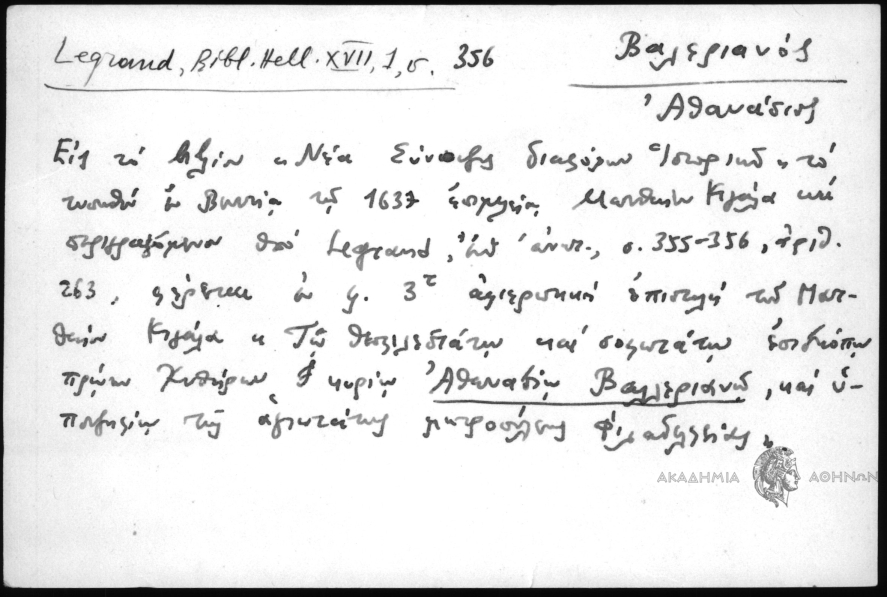 Legrand, Bibl. Hell. XVII, 1, σ. 356
Βαλεριανός
Ἀθανάσιος
Εἰς τό βιβλίον « Νέα Σύνοψις διαφόρων Ἱστοριῶν » τό
τυπωθέν ἐν Βενετίᾳ τῷ 1637 ἐπιμελείᾳ Ματθαίου Κιγάλα καί
περιγραφόμενον ὑπό Legrand, ἔνθ' ἀνωτ., σ. 355-356, ἀριθ.
263, φέρεται ἐν φ. 3 ἀφιερωτική ἐπιστολή τοῦ Ματ-
θαίου Κιγάλα « Τῷ θεοφιλεστάτῳ καί σοφωτάτῳ ἐπισκόπῳ
πρώην Κυθήρων κυρίῳ Ἀθανασίῳ Βαλεριανῷ, καί ὑ-
ποψηφίῳ τῆς ἁγιωτάτης μητροπόλεως Φιλαδελφείας »
ΑΚΑΔΗΜΙΑ ΑΘΗΝΩΝ